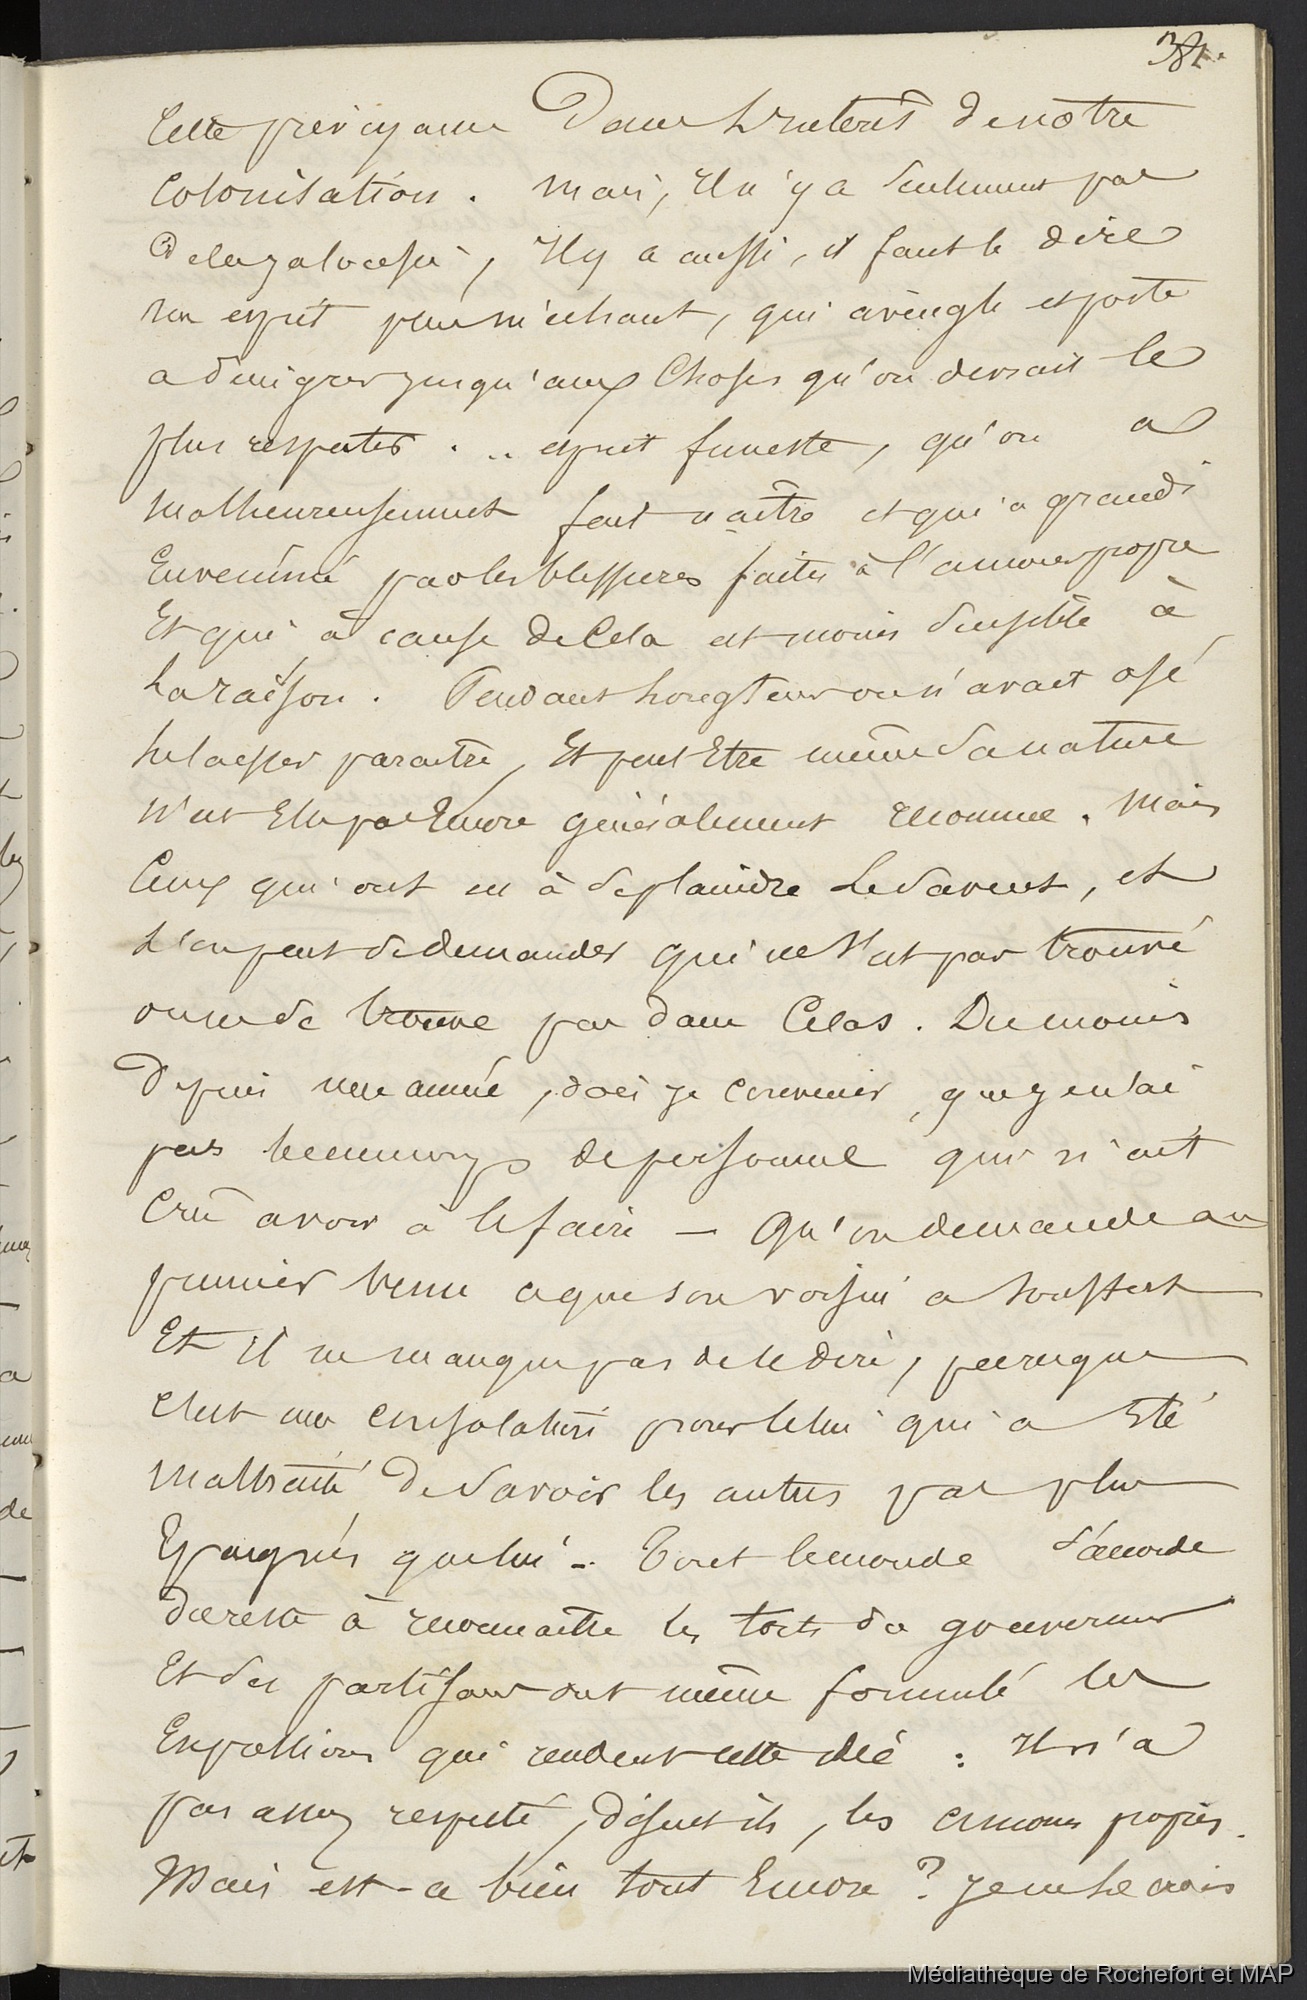 381.
Cette prévoyance Dans L'interêt de notre
Colonisation. Mais, Il n'y a seulement pas
De la jalousie, Il y a aussi, il faut le dire
un esprit plus méchant, qui aveugle et porte
a dénigrer jusqu'aux Choses qu'on devrait le
plus respecter. .. esprit funeste, qu'on a
malheureusement fait naître et qui a grandi
Envenimé par les blessures faites à l'amour propre
Et qui à cause de Cela est moins sensible à
La raison. Pendant Longtems on n'avait osé
le laisser paraitre, Et peut Etre même sa nature
n'est Elle pas Encore généralement reconnue. Mais
Ceux qui ont eu à se plaindre Le savent, et
L'on peut se demander qui ne s'est pas trouvé
ou ne se trouve pas dans Ce cas. Du moins
Depuis une année, dois je convenir, que j'en sai
pas beaucoup de personne qui n'ait
Crû avoir à le faire — Qu'on demande au
premier venu ce que son voisin a souffert
Et il ne manque pas de le dire, puisque
C'est une consolation pour Celui qui a Eté
maltraité De savoir les autres pas plus
Epargnés que lui -. Tout le monde s'accorde
du reste à reconnaitre les torts du gouverneur
Et ses partisans ont même formulé les
Expressions qui rendent cette idée : Il n'a
pas assez respecté, disent ils, les amours propres.
Mais est-ce bien tout Encore ? Je ne Le crois
Médiathèque de Rochefort et MAP